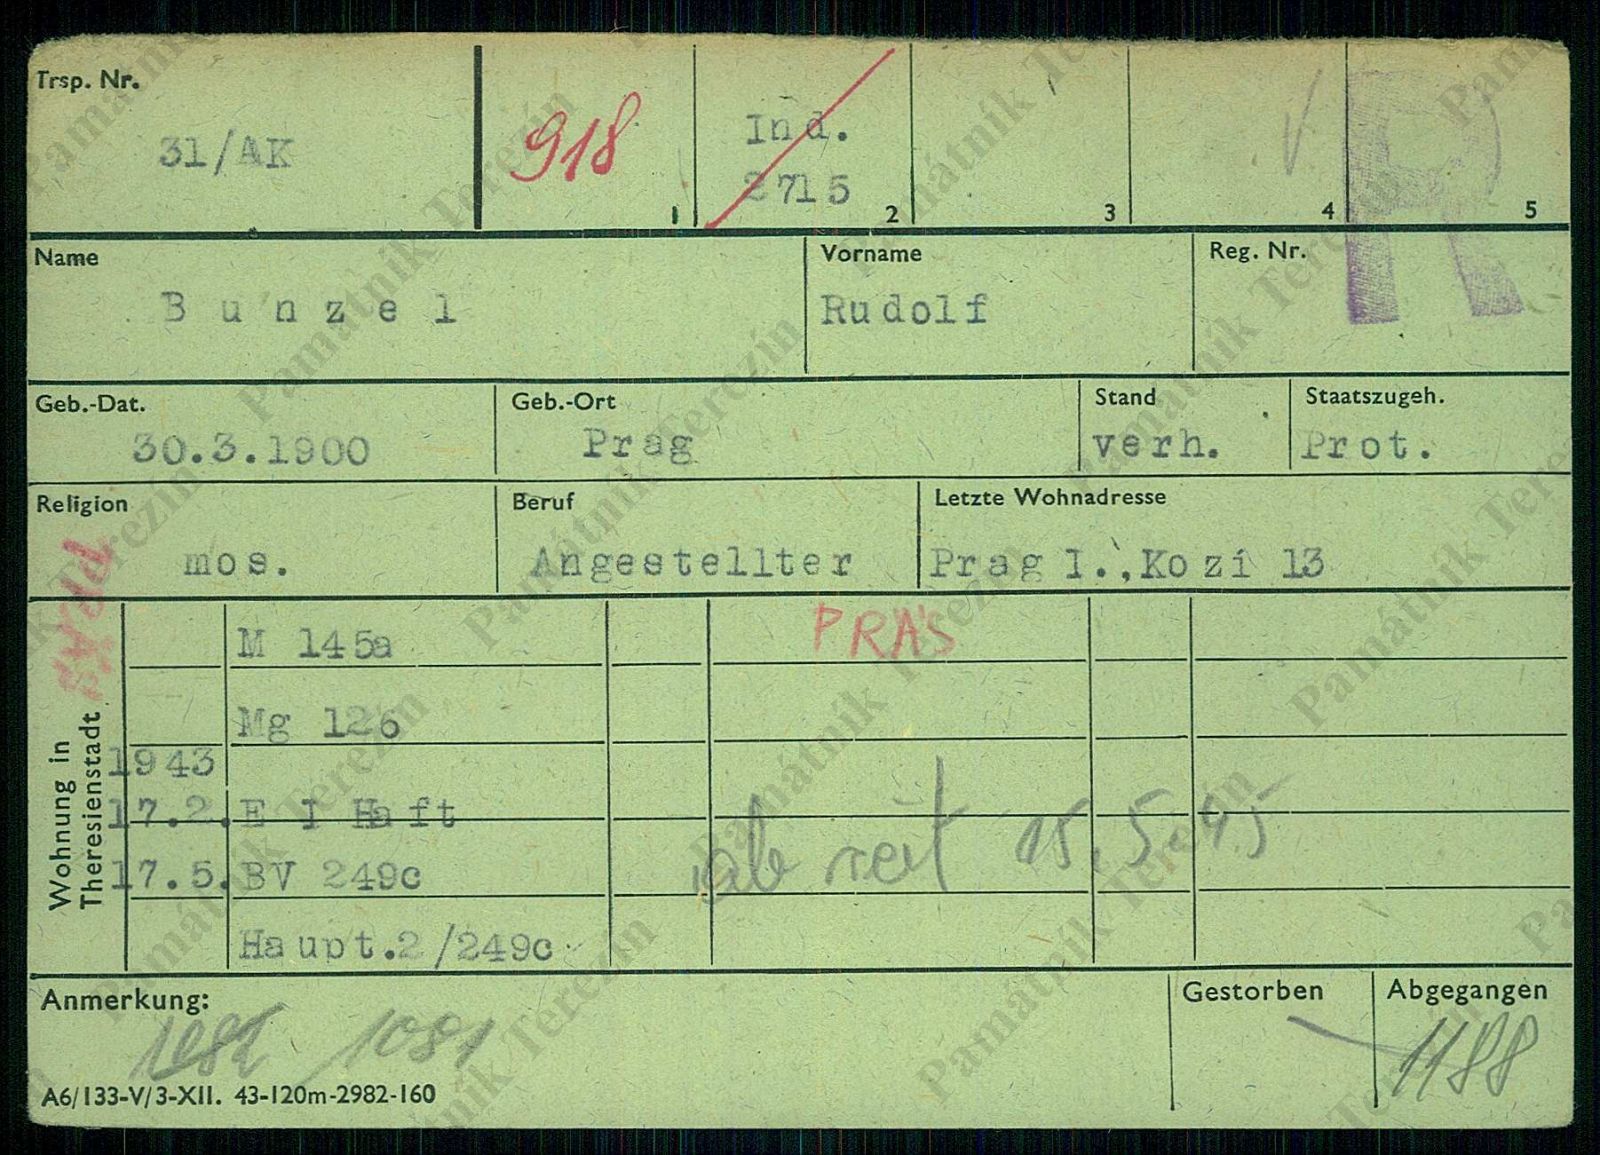 Trsp. Nr.
31/AK
918
1
Ind.
2715
2
3
4
5
R
Name
Bunzel
Vorname
Rudolf
Reg. Nr.
Geb.-Dat.
30.3.1900
Geb.-Ort
Prag
Stand
verh.
Staatszugeh.
Prot.
Religion
mos.
Beruf
Angestellter
Letzte Wohnadresse
Prag I.,Kozí 13
Wohnung in
Theresienstadt
M 145a
PRÄS
Mg 126
1943
17.2. E I Haft
17.5. BV 249c
Haupt.2/249c
ab seit 15.5.45
Anmerkung:
1082 1081
Gestorben
Abgegangen
1188
A6/133-V/3-XII. 43-120m-2982-160
Památník Terezín